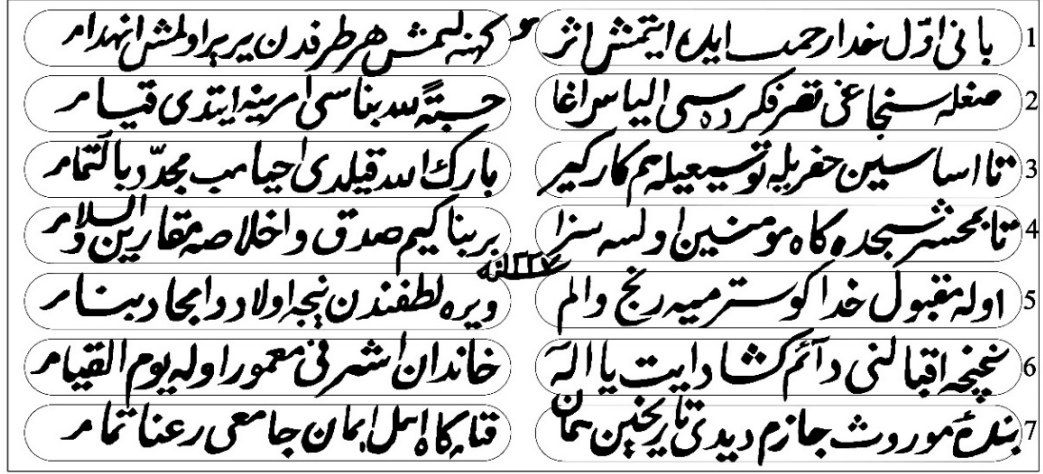 1 بانئ اوّل خدا رحمت ایده ایتمش اثر و کهنه‌لمش هر طرفدن یر یر اولمش انهدام
2 صغله سنجاغی تصرفکرده سی الیاس اغا حسبةً لله بناسی امرینه ایتدی قیام
3 تا اساسین حفریله توسیعیله هم کارکیر بارك الله قیلدی احیا هب مجدّد بالتمام
4 تا بمحشر سجده کاه مومنین اولسه سزا بر بنا کیم صدق و اخلاصه مقارین والسلام
سنه ١٢٢٧
5 اوله مقبول خدا کوسترمیه رنج والم ویره لطفندن نیجه اولاد و امجاد بنام
6 غنچه اقبالنی دائم کشاد ایت یا اله خاندان اشرفی معمور اوله یوم القیام
7 بنده موروث جازم دیدی تاریخین همان اهل ایمان جامعی رعنا تمام